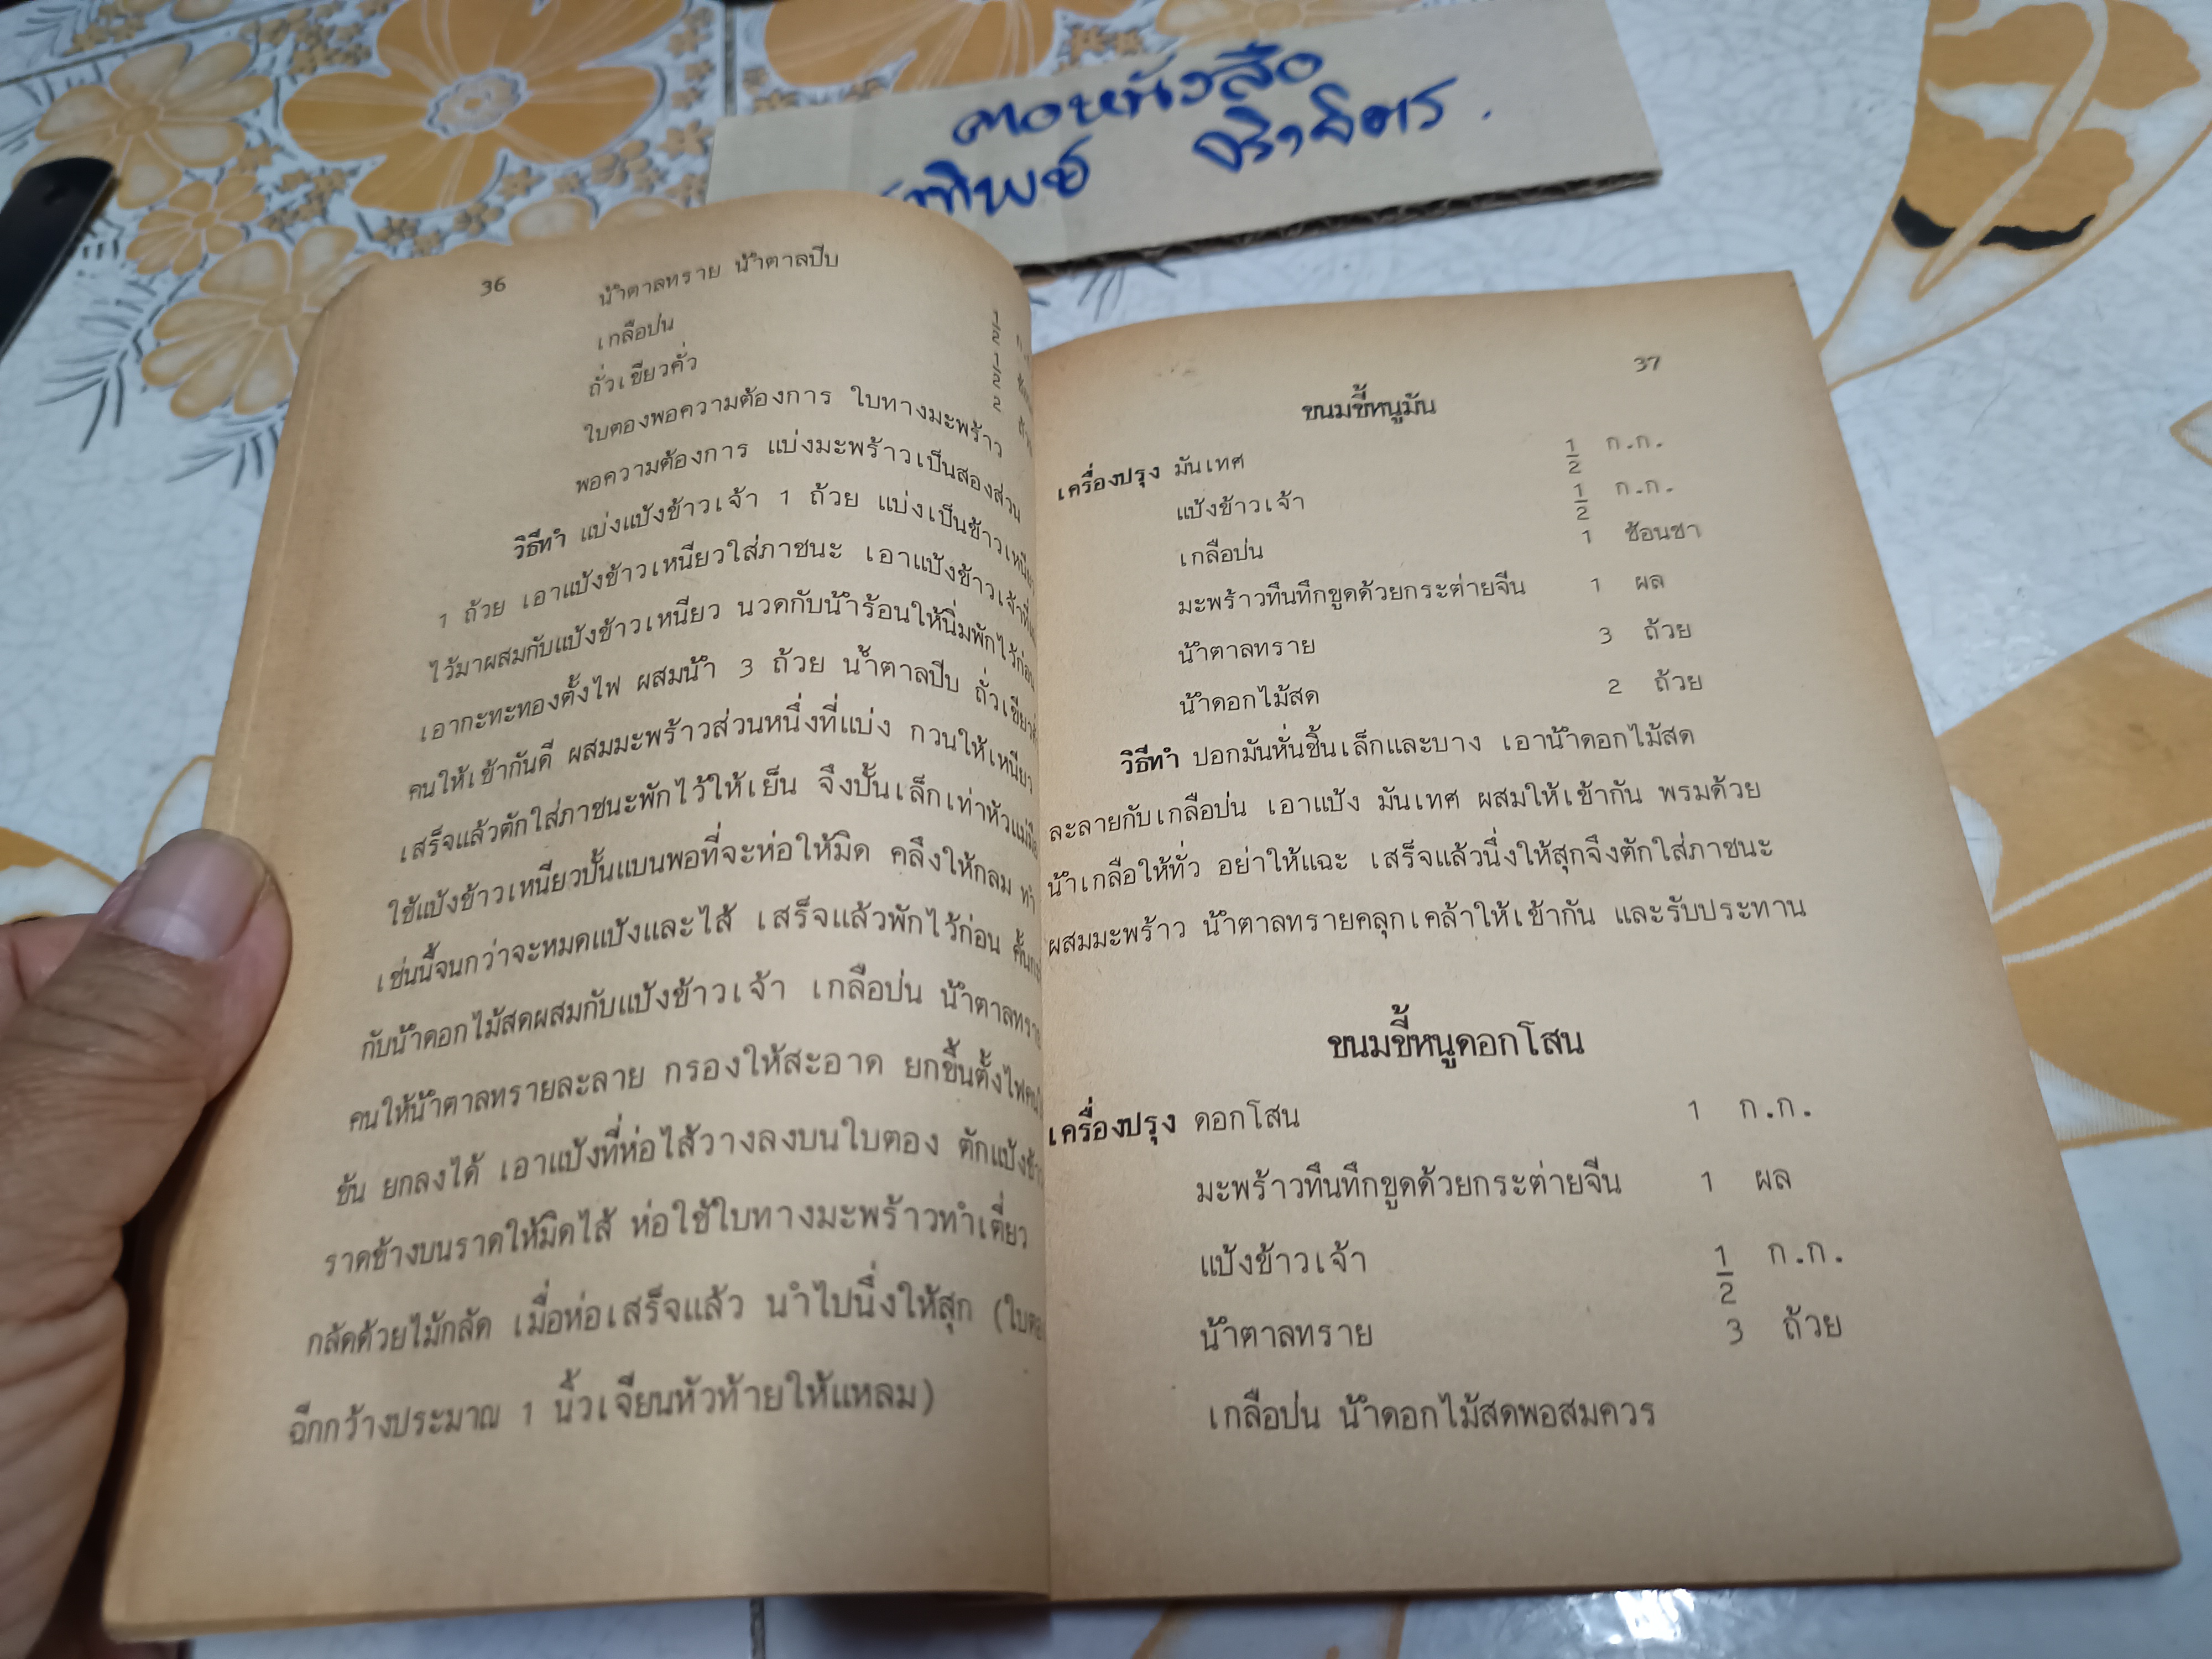 คอหนังสือ
36
น้ำตาลทราย น้ำตาลปีบ 1/2
เกลือป่น 1/2
ถั่วเขียวคั่ว 2
ใบตองพอความต้องการ ใบทางมะพร้าว
พอความต้องการ แบ่งมะพร้าวเป็นสองส่วน
วิธีทำ แบ่งแป้งข้าวเจ้า 1 ถ้วย แบ่งเป็นข้าวเหนียว
1 ถ้วย เอาแป้งข้าวเหนียวใส่ภาชนะ เอาแป้งข้าวเจ้าที่
ไว้มาผสมกับแป้งข้าวเหนียว นวดกับน้ำร้อนให้นิ่มพักไว้ก่อน
เอากะทะทองตั้งไฟ ผสมน้ำ 3 ถ้วย น้ำตาลปีบ ถั่วเขียว
คนให้เข้ากันดี ผสมมะพร้าวส่วนหนึ่งที่แบ่ง กวนให้เหนียว
เสร็จแล้วตักใส่ภาชนะพักไว้ให้เย็น จึงปั้นเล็กเท่าหัวแม่
ใช้แป้งข้าวเหนียวปั้นแบนพอที่จะห่อให้มิด คลึงให้กลม ทำ
เช่นนี้จนกว่าจะหมดแป้งและไส้ เสร็จแล้วพักไว้ก่อน
กับน้ำดอกไม้สดผสมกับแป้งข้าวเจ้า เกลือป่น น้ำตาลทราย
คนให้น้ำตาลทรายละลาย กรองให้สะอาด ยกขึ้นตั้งไฟ
ข้น ยกลงได้ เอาแป้งที่ห่อไส้วางลงบนใบตอง ตักแป้ง
ราดข้างบนราดให้มิดไส้ ห่อใช้ใบทางมะพร้าวทำเตี่ยว
กลัดด้วยไม้กลัด เมื่อห่อเสร็จแล้ว นำไปนึ่งให้สุก (ใบตอง
ฉีกกว้างประมาณ 1 นิ้วเจียนหัวท้ายให้แหลม)
37
ขนมขี้หนูมัน
เครื่องปรุง มันเทศ 1/2 ก.ก.
แป้งข้าวเจ้า 1/2 ก.ก.
เกลือป่น 1 ช้อนชา
มะพร้าวทึนทึกขูดด้วยกระต่ายจีน 1 ผล
น้ำตาลทราย 3 ถ้วย
น้ำดอกไม้สด 2 ถ้วย
วิธีทำ ปอกมันหั่นชิ้นเล็กและบาง เอาน้ำดอกไม้สด
ละลายกับเกลือป่น เอาแป้ง มันเทศ ผสมให้เข้ากัน พรมด้วย
น้ำเกลือให้ทั่ว อย่าให้แฉะ เสร็จแล้วนึ่งให้สุกจึงตักใส่ภาชนะ
ผสมมะพร้าว น้ำตาลทรายคลุกเคล้าให้เข้ากัน และรับประทาน
ขนมขี้หนูดอกโสน
เครื่องปรุง ดอกโสน 1 ก.ก.
มะพร้าวทึนทึกขูดด้วยกระต่ายจีน 1 ผล
แป้งข้าวเจ้า 1/2 ก.ก.
น้ำตาลทราย 3 ถ้วย
เกลือป่น น้ำดอกไม้สดพอสมควร